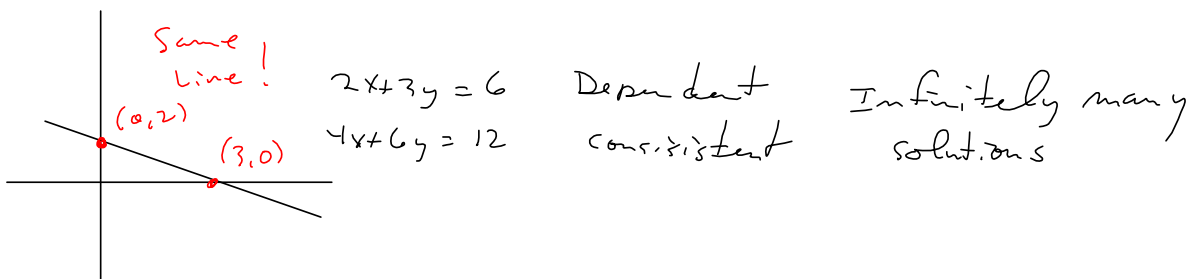 Same
Line!
(0,2)
(3,0)
2x+3y = 6
4x+6y = 12
Dependent
consisistent
Infinitely many
solutions